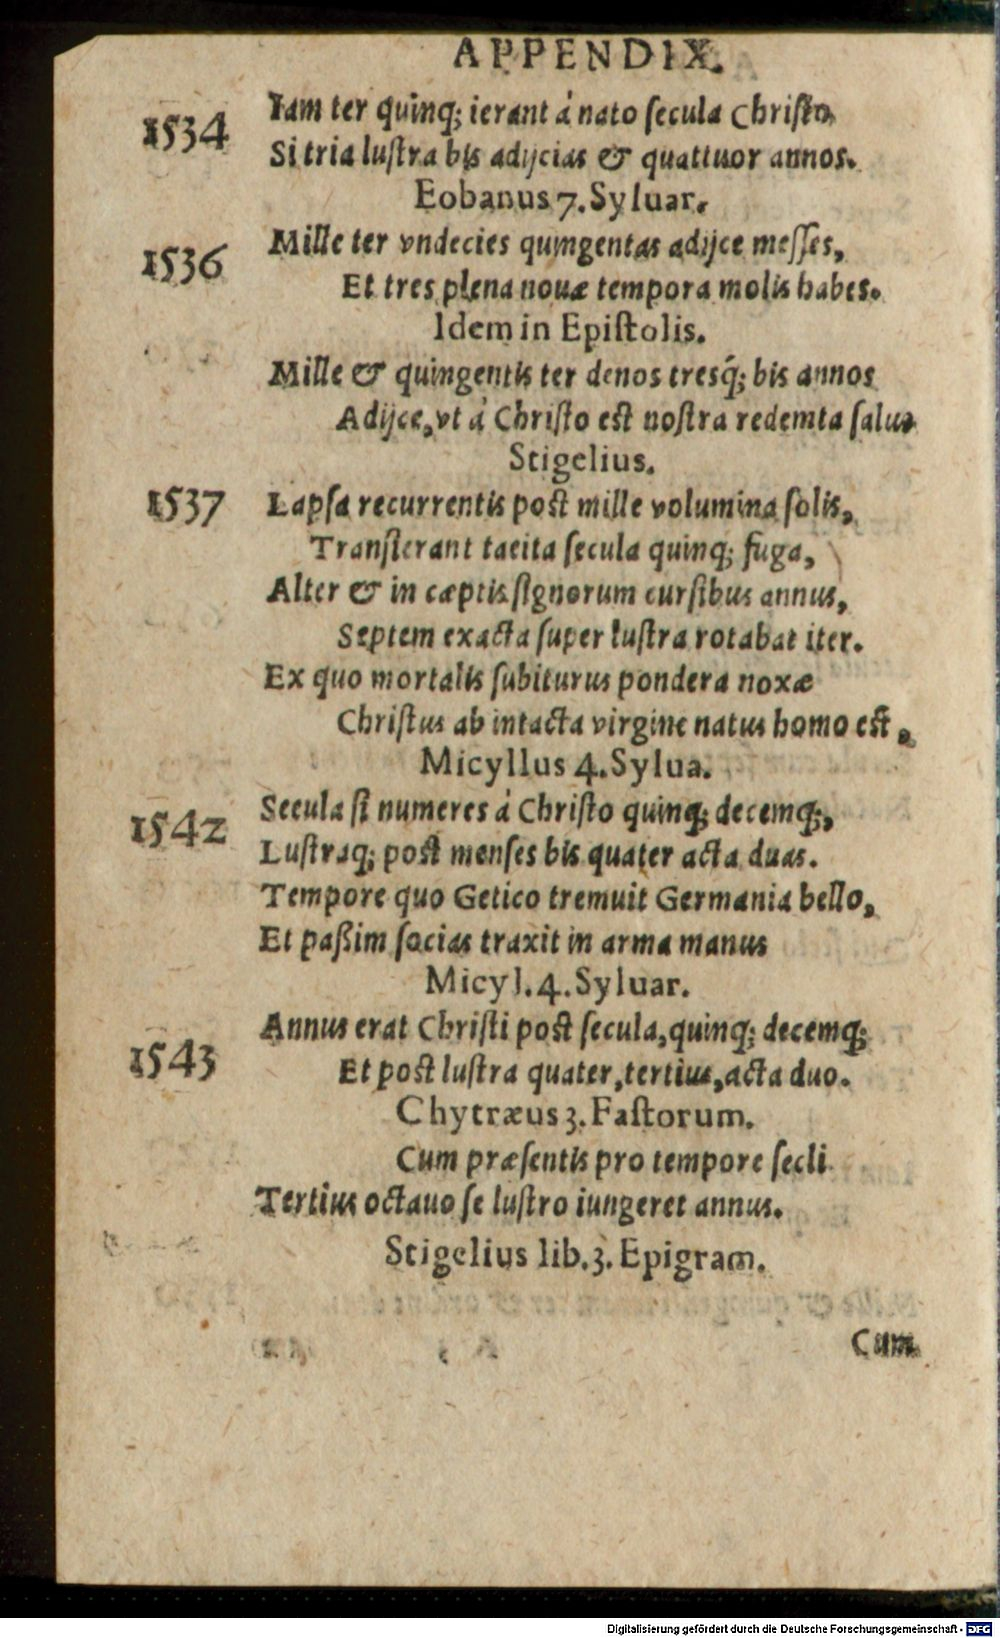 APPENDIX.
1534 Iam ter quinq; ierant à nato ſecula Chriſto,
Si tria luſtra bis adijcias & quattuor annos.
Eobanus 7. Syluar.
1536 Mille ter vndecies quingentas adijce meſſes,
Et tres plena nouæ tempora molis habes.
Idem in Epiſtolis.
Mille & quingentis ter denos tresq́; bis annos
Adijce, vt à Chriſto eſt noſtra redemta ſalus
Stigelius.
1537 Lapſa recurrentis poſt mille volumina ſolis,
Tranſierant tacita ſecula quinq; fuga,
Alter & in cæptis ſignorum curſibus annus,
Septem exacta ſuper luſtra rotabat iter.
Ex quo mortalis ſubiturus pondera noxæ
Chriſtus ab intacta virgine natus homo eſt.
Micyllus 4. Sylua.
1542 Secula ſi numeres à Chriſto quinq; decemq;,
Luſtraq; poſt menſes bis quater acta duas.
Tempore quo Getico tremuit Germania bello,
Et paßim ſocias traxit in arma manus
Micyl. 4. Syluar.
1543 Annus erat Chriſti poſt ſecula, quinq; decemq;
Et poſt luſtra quater, tertius, acta duo.
Chytræus 3. Faſtorum.
Cum præſentis pro tempore ſecli
Tertius octauo ſe luſtro iungeret annus.
Stigelius lib. 3. Epigram.
Cum
Digitalisierung gefördert durch die Deutsche Forschungsgemeinschaft - DFG